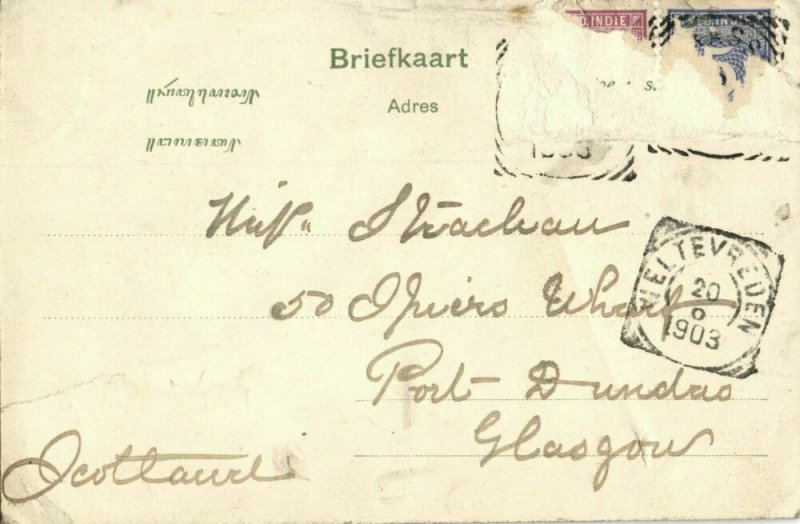 D. INDIE
Briefkaart
Adres
1903
Miss Strachan
50 Spiers Wharf
WELTEVREDEN
20
1903
Port Dundas
Glasgow
Scotland